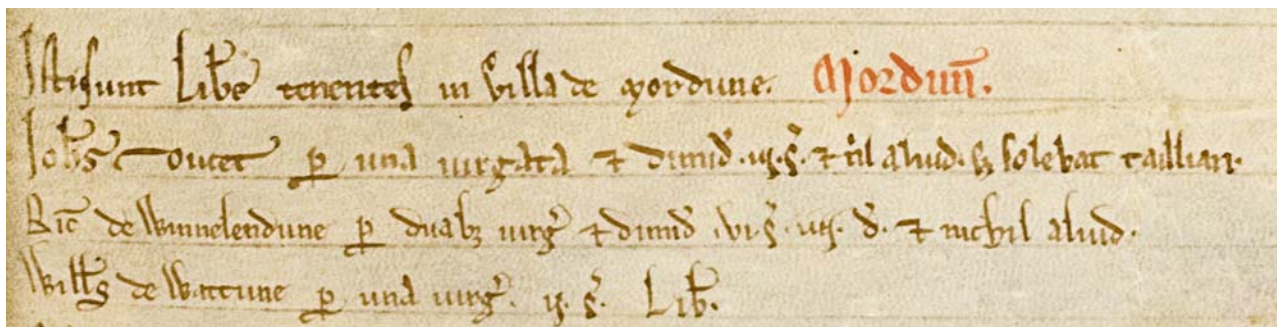 Isti sunt Lib̄e tenentes in villa de Mordune. Mordun̄.
Joh̄s Toucet ꝑ una virgata ⁊ dimid̄. iij. s̄. ⁊ nil aliud. sȝ solebat tailliari.
Ric̄ de Winnelendune ꝑ duabȝ virḡ ⁊ dimid̄ . vi. s̄. iiij. d̄. ⁊ nichil aliud.
Will̄s de Wattune ꝑ una virḡ. ij. s̄. Lib̄.